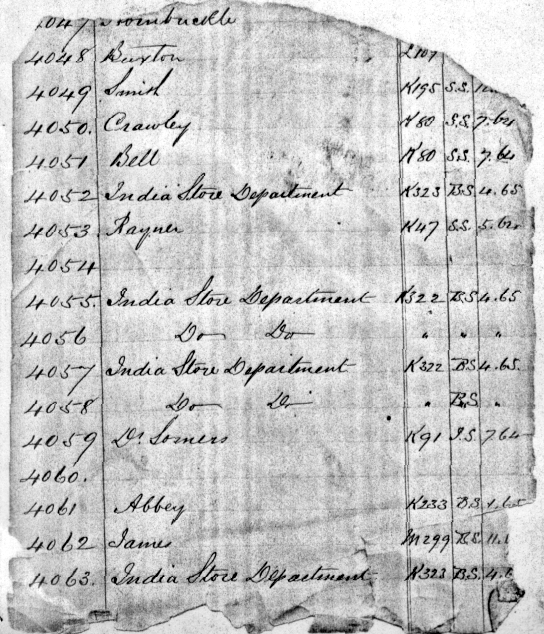 4047 Hornbuckle
4048 Buxton L107
4049 Smith K195 S.S.
4050. Crawley K80 S.S. 7.64
4051 Bell K80 S.S. 7.64
4052 India Store Department K323 B.S. 4.65
4053. Rayner K47 S.S. 5.64
4054
4055. India Store Department K322 B.S. 4.65
4056 Do Do " " "
4057 India Store Department K322 B.S. 4.65.
4058 Do Do " B.S. "
4059 Dr Somers K91 J.S. 7.64
4060.
4061 Abbey K233 B.S.
4062 James M299 B.S. 11.
4063. India Store Department K323 B.S. 4.6